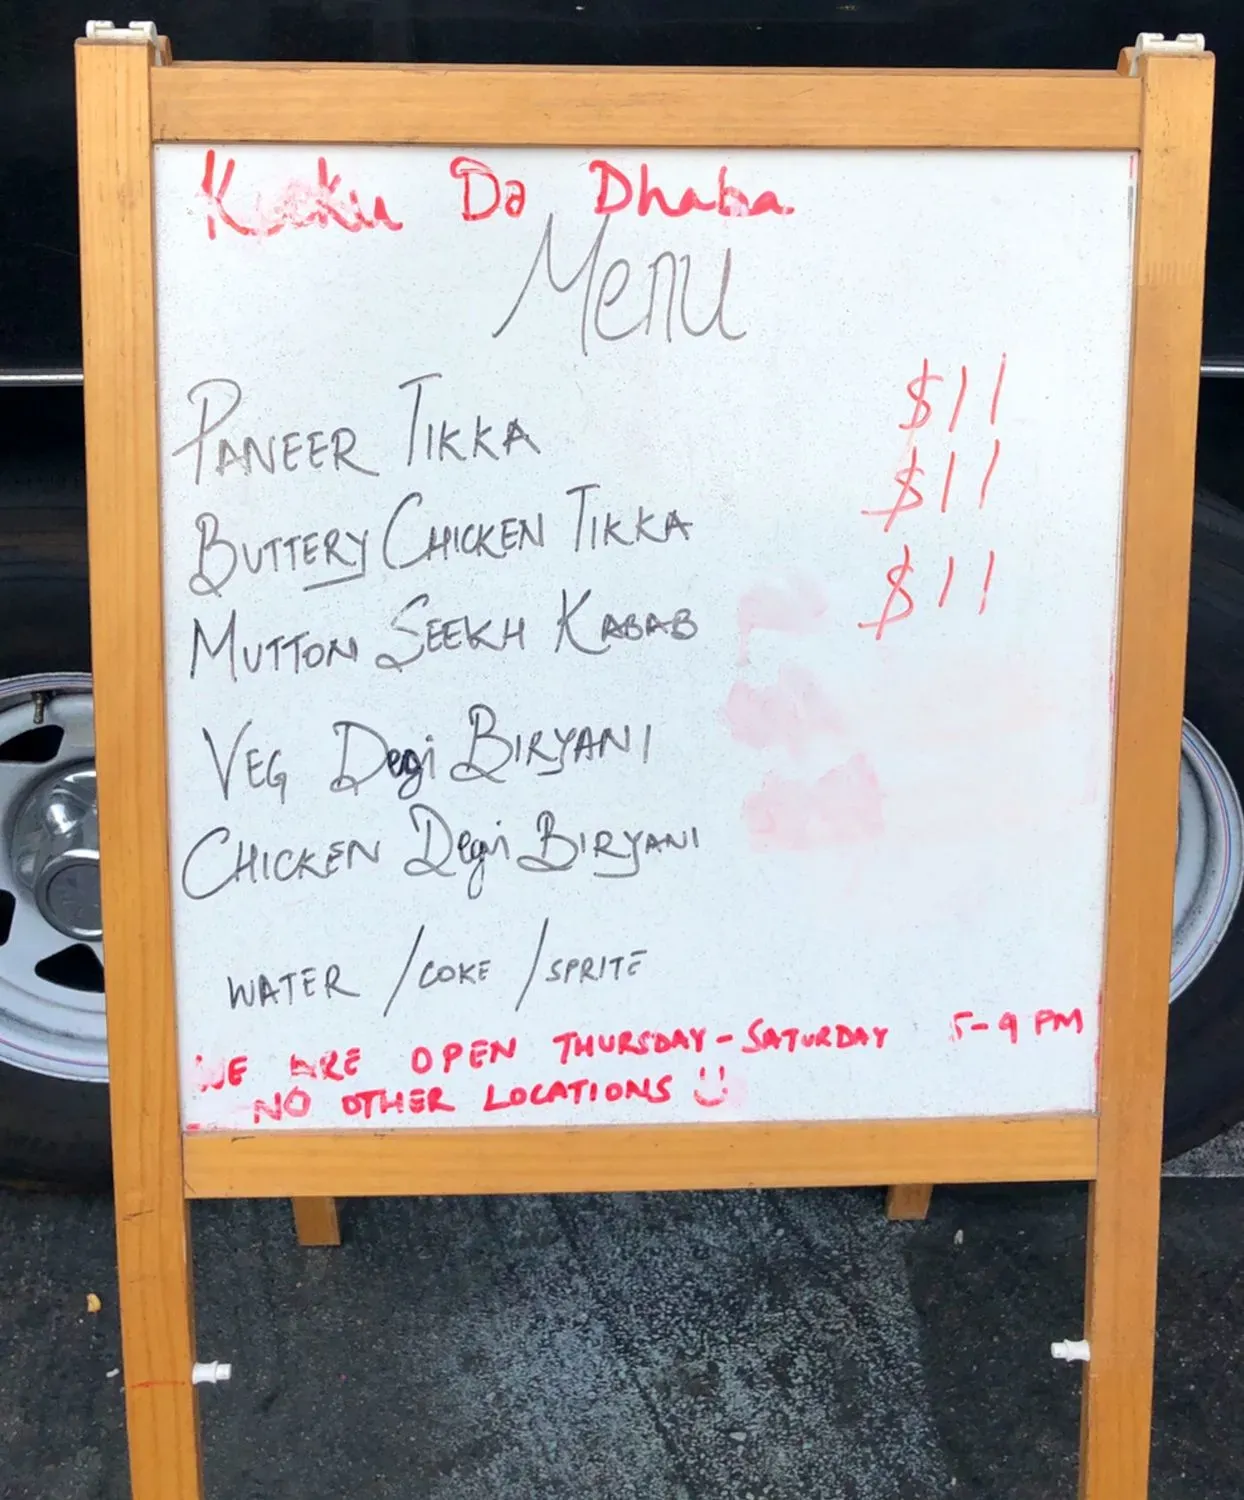 Kuku Da Dhaba
Menu
PANEER TIKKA $11
BUTTERY CHICKEN TIKKA $11
MUTTON SEEKH KABAB $11
VEG Degi BIRYANI
CHICKEN Degi BIRYANI
WATER / COKE / SPRITE
WE ARE OPEN THURSDAY - SATURDAY 5-9 PM
NO OTHER LOCATIONS